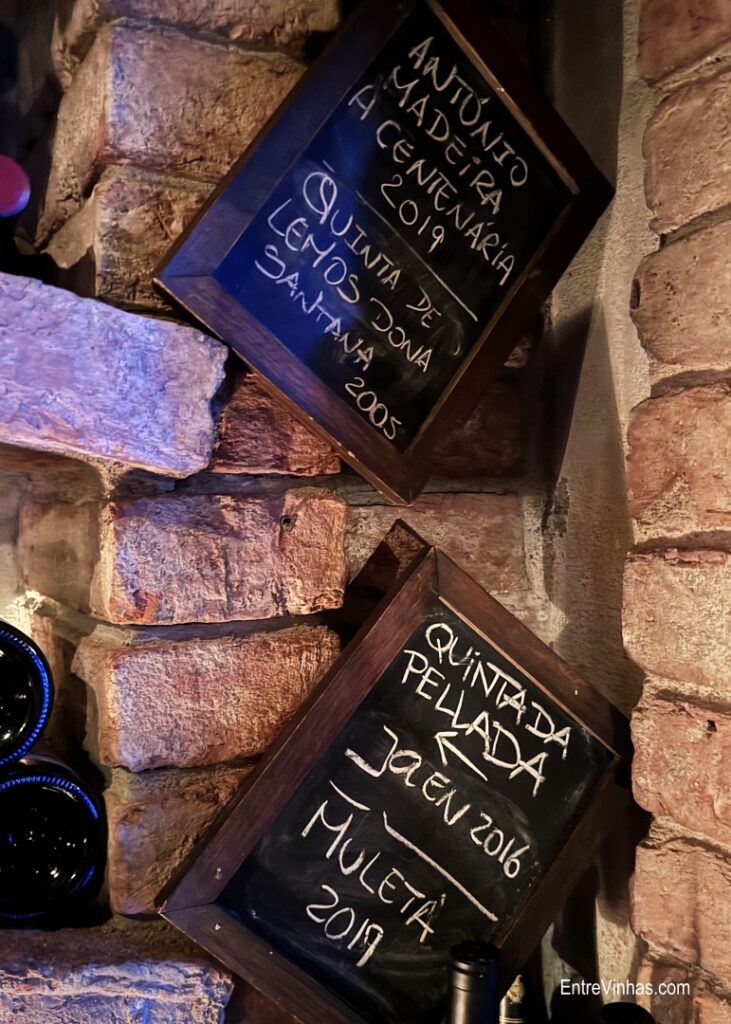 ANTÓNIO
MADEIRA
A CENTENÁRIA
2019
QUINTA DE
LEMOS DONA
SANTANA
2005
QUINTA DA
PELLADA
←
JAEN 2016
MULETA
2019
EntreVinhas.com